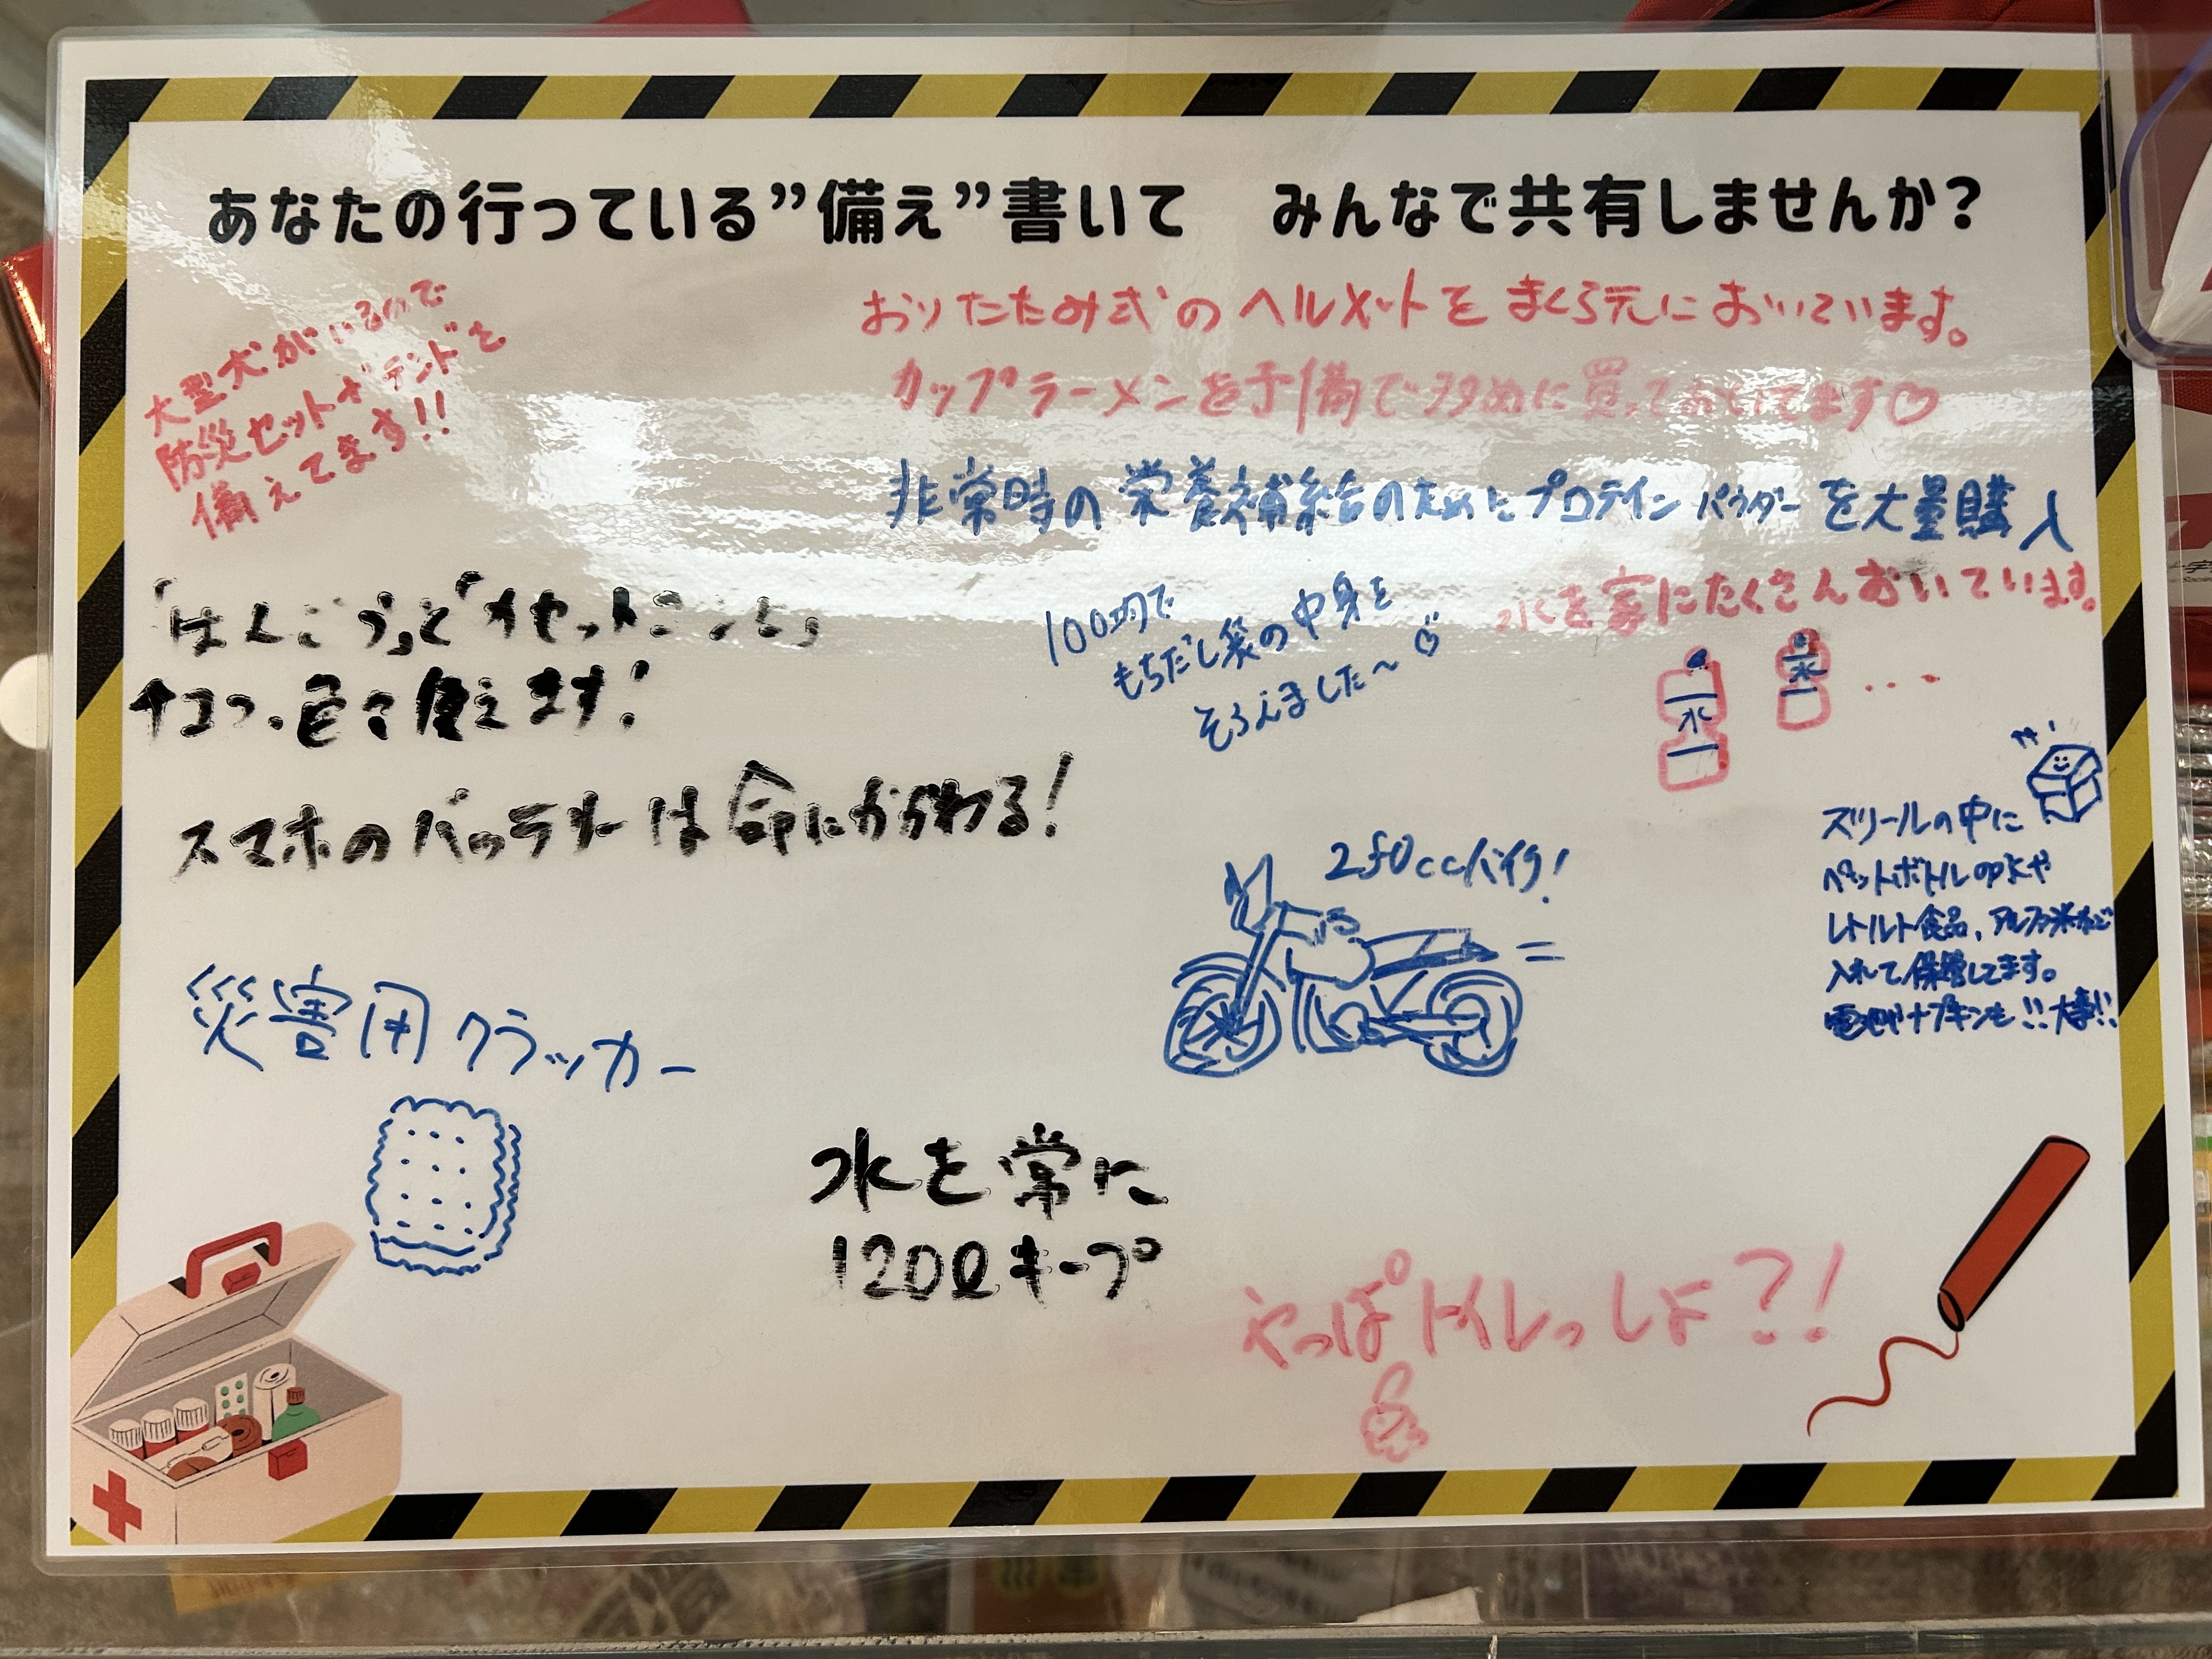 あなたの行っている”備え”書いて　みんなで共有しませんか?
大型犬がいるので
防災セット+テントを
備えてます!!
おりたたみ式のヘルメットをまくら元においています。
カップラーメンを予備で多めに買っておいてます♡
非常時の栄養補給のためにプロテインパウダーを大量購入
「はんごう」と「カセットコンロ」
チョコっ、色々使えます!
100均で
もちだし袋の中身を
そろえました〜♡
水を家にたくさんおいています。
水
水
...
スマホのバッテリーは命にかかわる!
250ccバイク!
スツールの中に
ペットボトルの水や
レトルト食品、アルファ米など
入れて保管してます。
電池やナプキンも!!大事!!
災害用クラッカー
水を常に
120ℓキープ
やっぱトイレっしょ?!